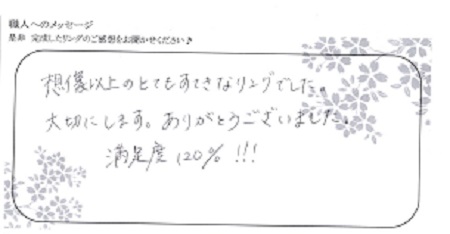 職人へのメッセージ
是非 完成したリングのご感想をお聞かせください♪
想像以上のとてもすてきなリングでした。
大切にします。ありがとうございました。
満足度120% !!!